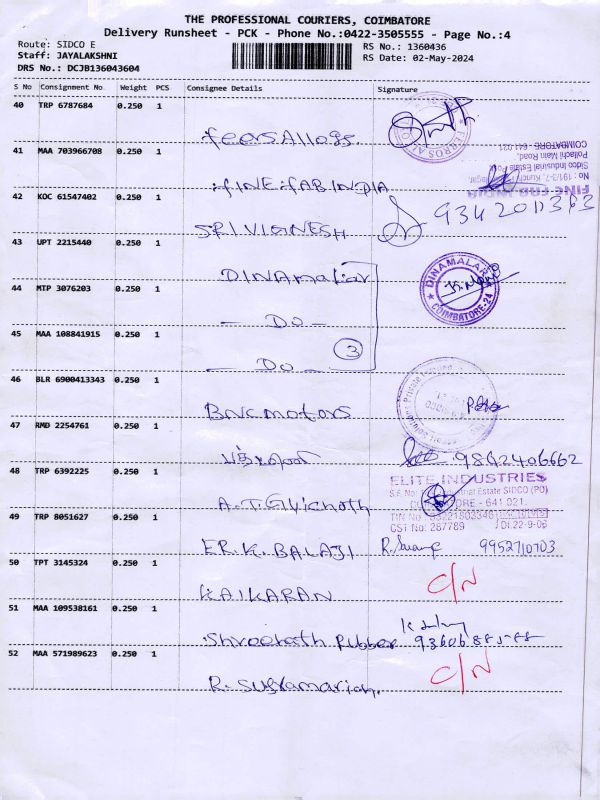 THE PROFESSIONAL COURIERS, COIMBATORE
Delivery Runsheet - PCK - Phone No.:0422-3505555 - Page No.:4
Route: SIDCO E
RS No.: 1360436
Staff: JAYALAKSHNI
RS Date: 02-May-2024
DRS No.: DCJB136043604
S No Consignment No Weight PCS Consignee Details Signature
40 TRP 6787684 0.250 1
41 MAA 703966708 0.250 1
FINE FAB INDIA
No 191/3-7,
Sidco Industrial Estate Po
Pollachi Main Road,
COIMBATORE- 641 021
FINE FAB INDIA
42 KOC 61547402 0.250 1
SRI VIGNESH
43 UPT 2215440 0.250 1
DINAmalar
DINAMALAR
COIMBATORE-24
44 MTP 3076203 0.250 1
- DO -
45 MAA 108841915 0.250 1
- DO -
3
46 BLR 6900413343 0.250 1
BNC motors
47 RMD 2254761 0.250 1
48 TRP 6392225 0.250 1
ELITE INDUSTRIES
Estate SIDCO (PO)
641 021.
CST No: 287789
49 TRP 8051627 0.250 1
ER.K. BALAJI
9952710703
50 TPT 3145324 0.250 1
KAIKARAN
C/N
51 MAA 109538161 0.250 1
Shreenath Rubber
52 MAA 571989623 0.250 1
C/N